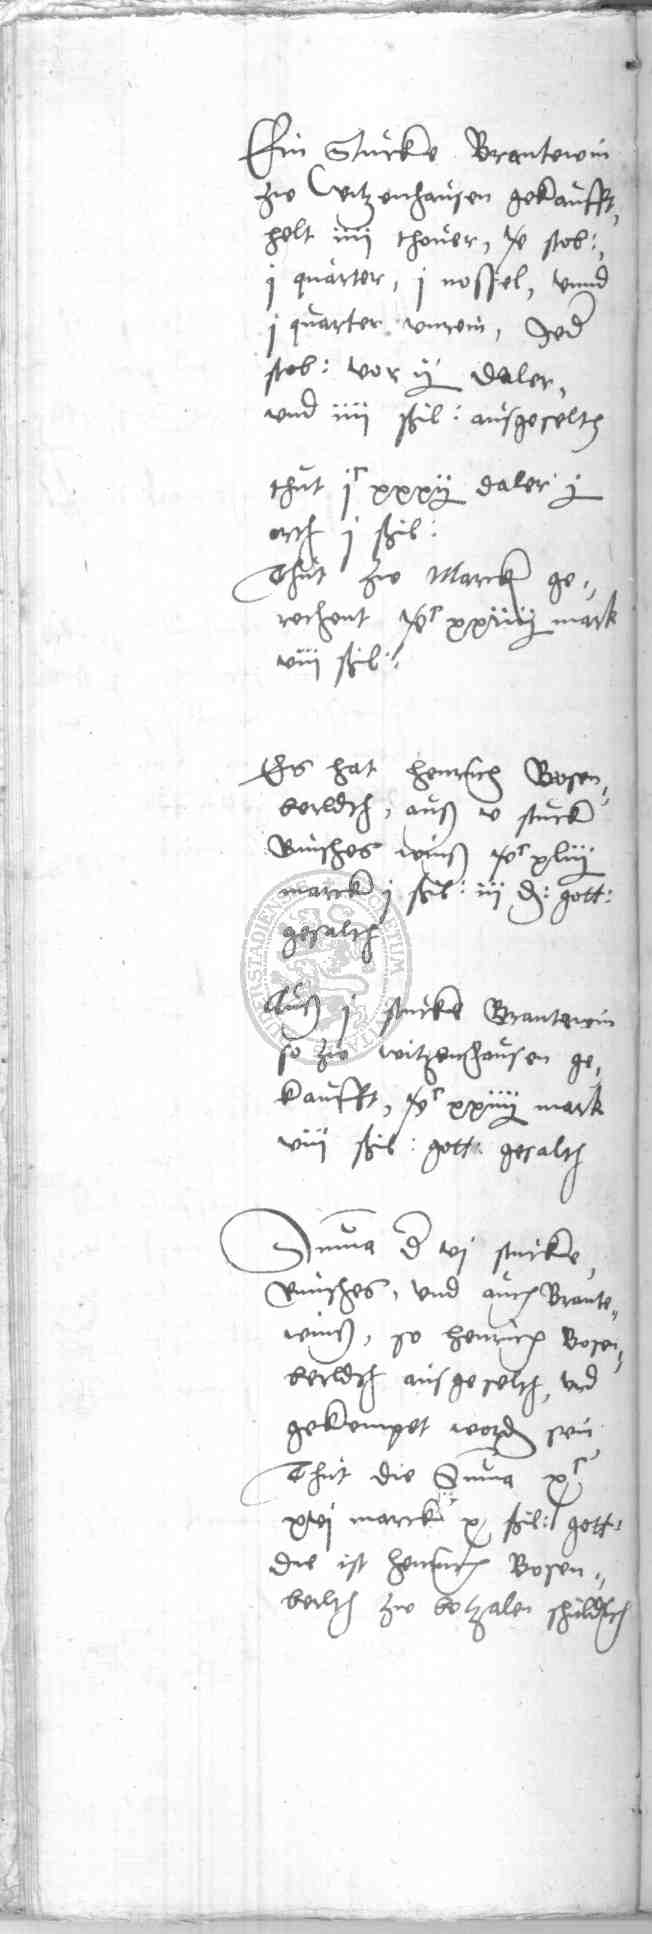 Ein Stucke Brantewin
zw Witzenhausen gekaufft,
helt iiii thover, x stob:,
j quarter, j nossel, vnnd
j quarter vnrein, Jed
stob: vor ij daler,
vnd iiii schil: ausgeselth
thut jc xxxij daler j
orth j schil:
Thut zw Marck ge,,
rechent iiijc xxiiij mark
viii schil:
Es hat henrich Bosen,,
berldch, aus v stuck
Rinsches wins vc xliij
marck j schil: iii d: gott:
gesalth
Aus j stucke Brantewin
so zw witzenhausen ge,,
kaufft, iiijc xxiiij mark
viii schil: gott: gesalth
Suma d vj stucke,
Rinsches, vnd auch Brante,,
wins, so henrich Bosen,,
berldch ausgeselth, vnd
gekempet word sein
Thut die Suma xc
xvi marck x schil: gott:
die ist henrich Bosen,,
berlch zw betzalen schuldich